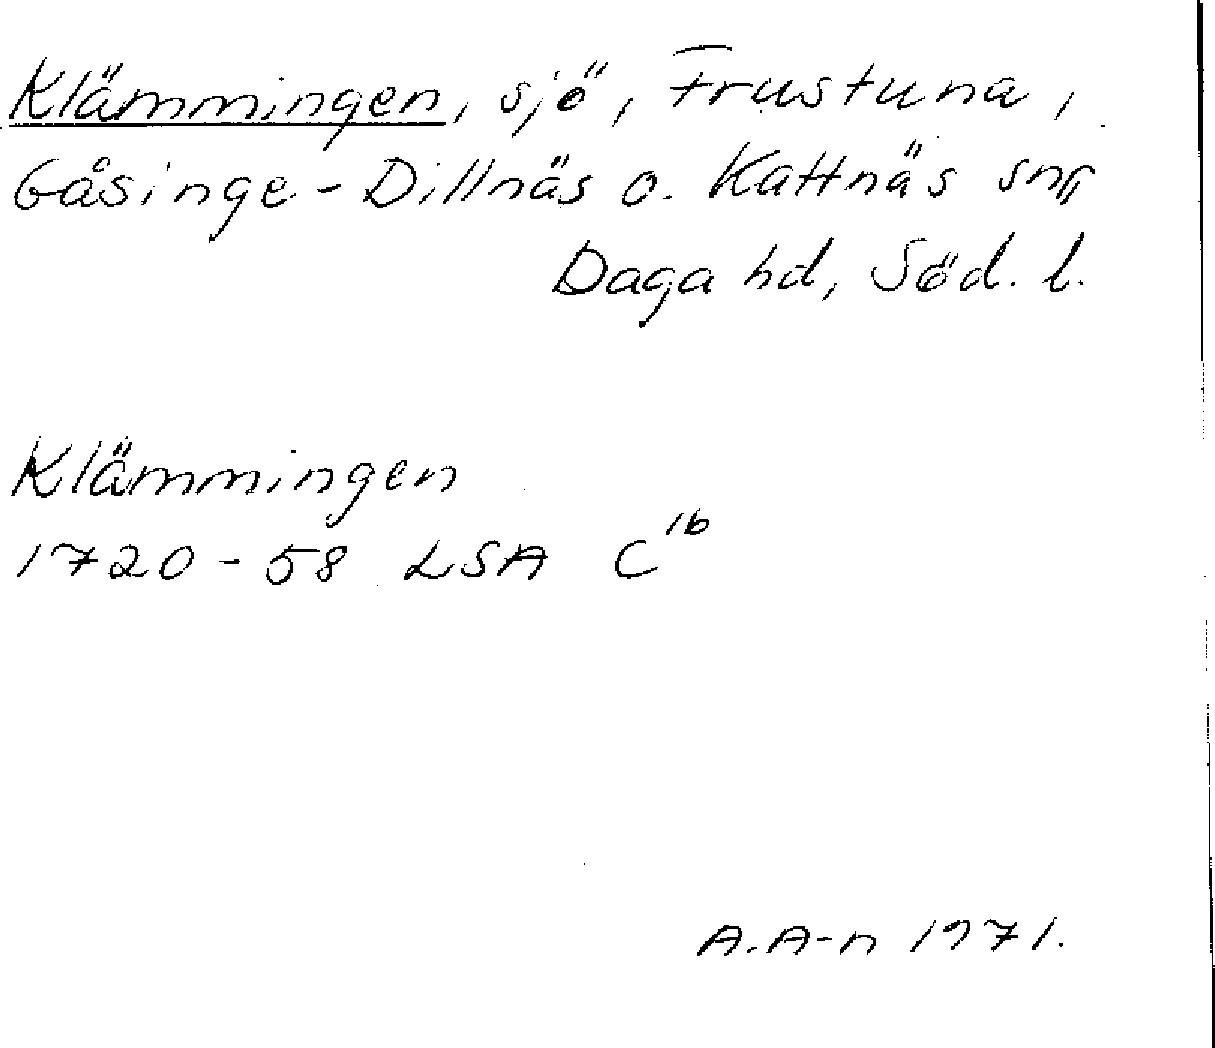 Klämmingen, sjö, Frustuna,
Gåsinge-Dillnäs o. Kattnäs snr
Daga hd, Söd. l.
Klämmingen
1720-58 LSA C 16
A.A-n 1971.